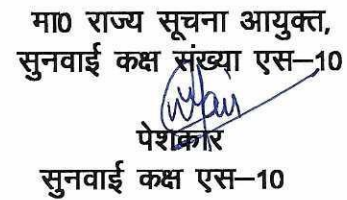 मा0 राज्य सूचना आयुक्त,
सुनवाई कक्ष संख्या एस–10
पेशकार
सुनवाई कक्ष एस–10